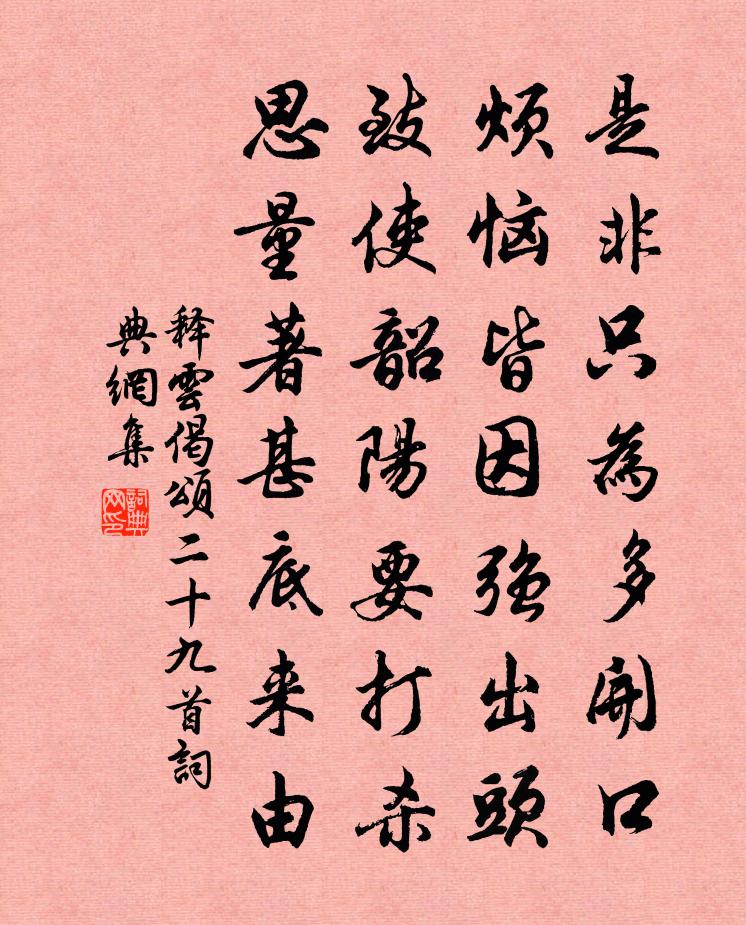 是非只為多開口
煩惱皆因强出頭
致使韶陽要打杀
思量著甚底来由
释雲偈頌二十九首詞
典網集
詞典
网印